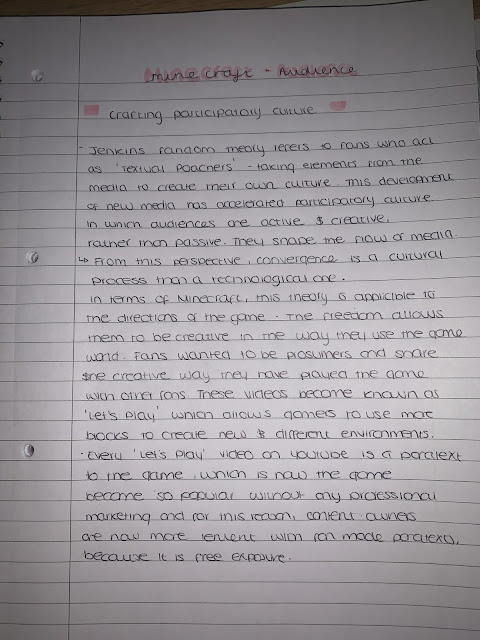 Minecraft - Audience
Crafting participatory culture
- Jenkins fandom theory refers to fans who act
as 'Textual Poachers' - taking elements from the
media to create their own culture. This development
of new media has accelerated participatory culture
in which audiences are active & creative,
rather than passive. They shape the flow of media.
↳ From this perspective, convergence is a cultural
process than a technological one.
In terms of Minecraft, this theory is applicible to
the directions of the game. The freedom allows
them to be creative in the way they use the game
world. Fans wanted to be prosumers and share
the creative way they have played the game
with other fans. These videos become known as
'Let's Play' which allows gamers to use more
blocks to create new & different environments.
- Every 'Let's Play' video on youtube is a paratext
to the game, which is how the game
became so popular without any professional
marketing and for this reason, content owners
are now more lenient with fan made paratexts,
because it is free exposure.